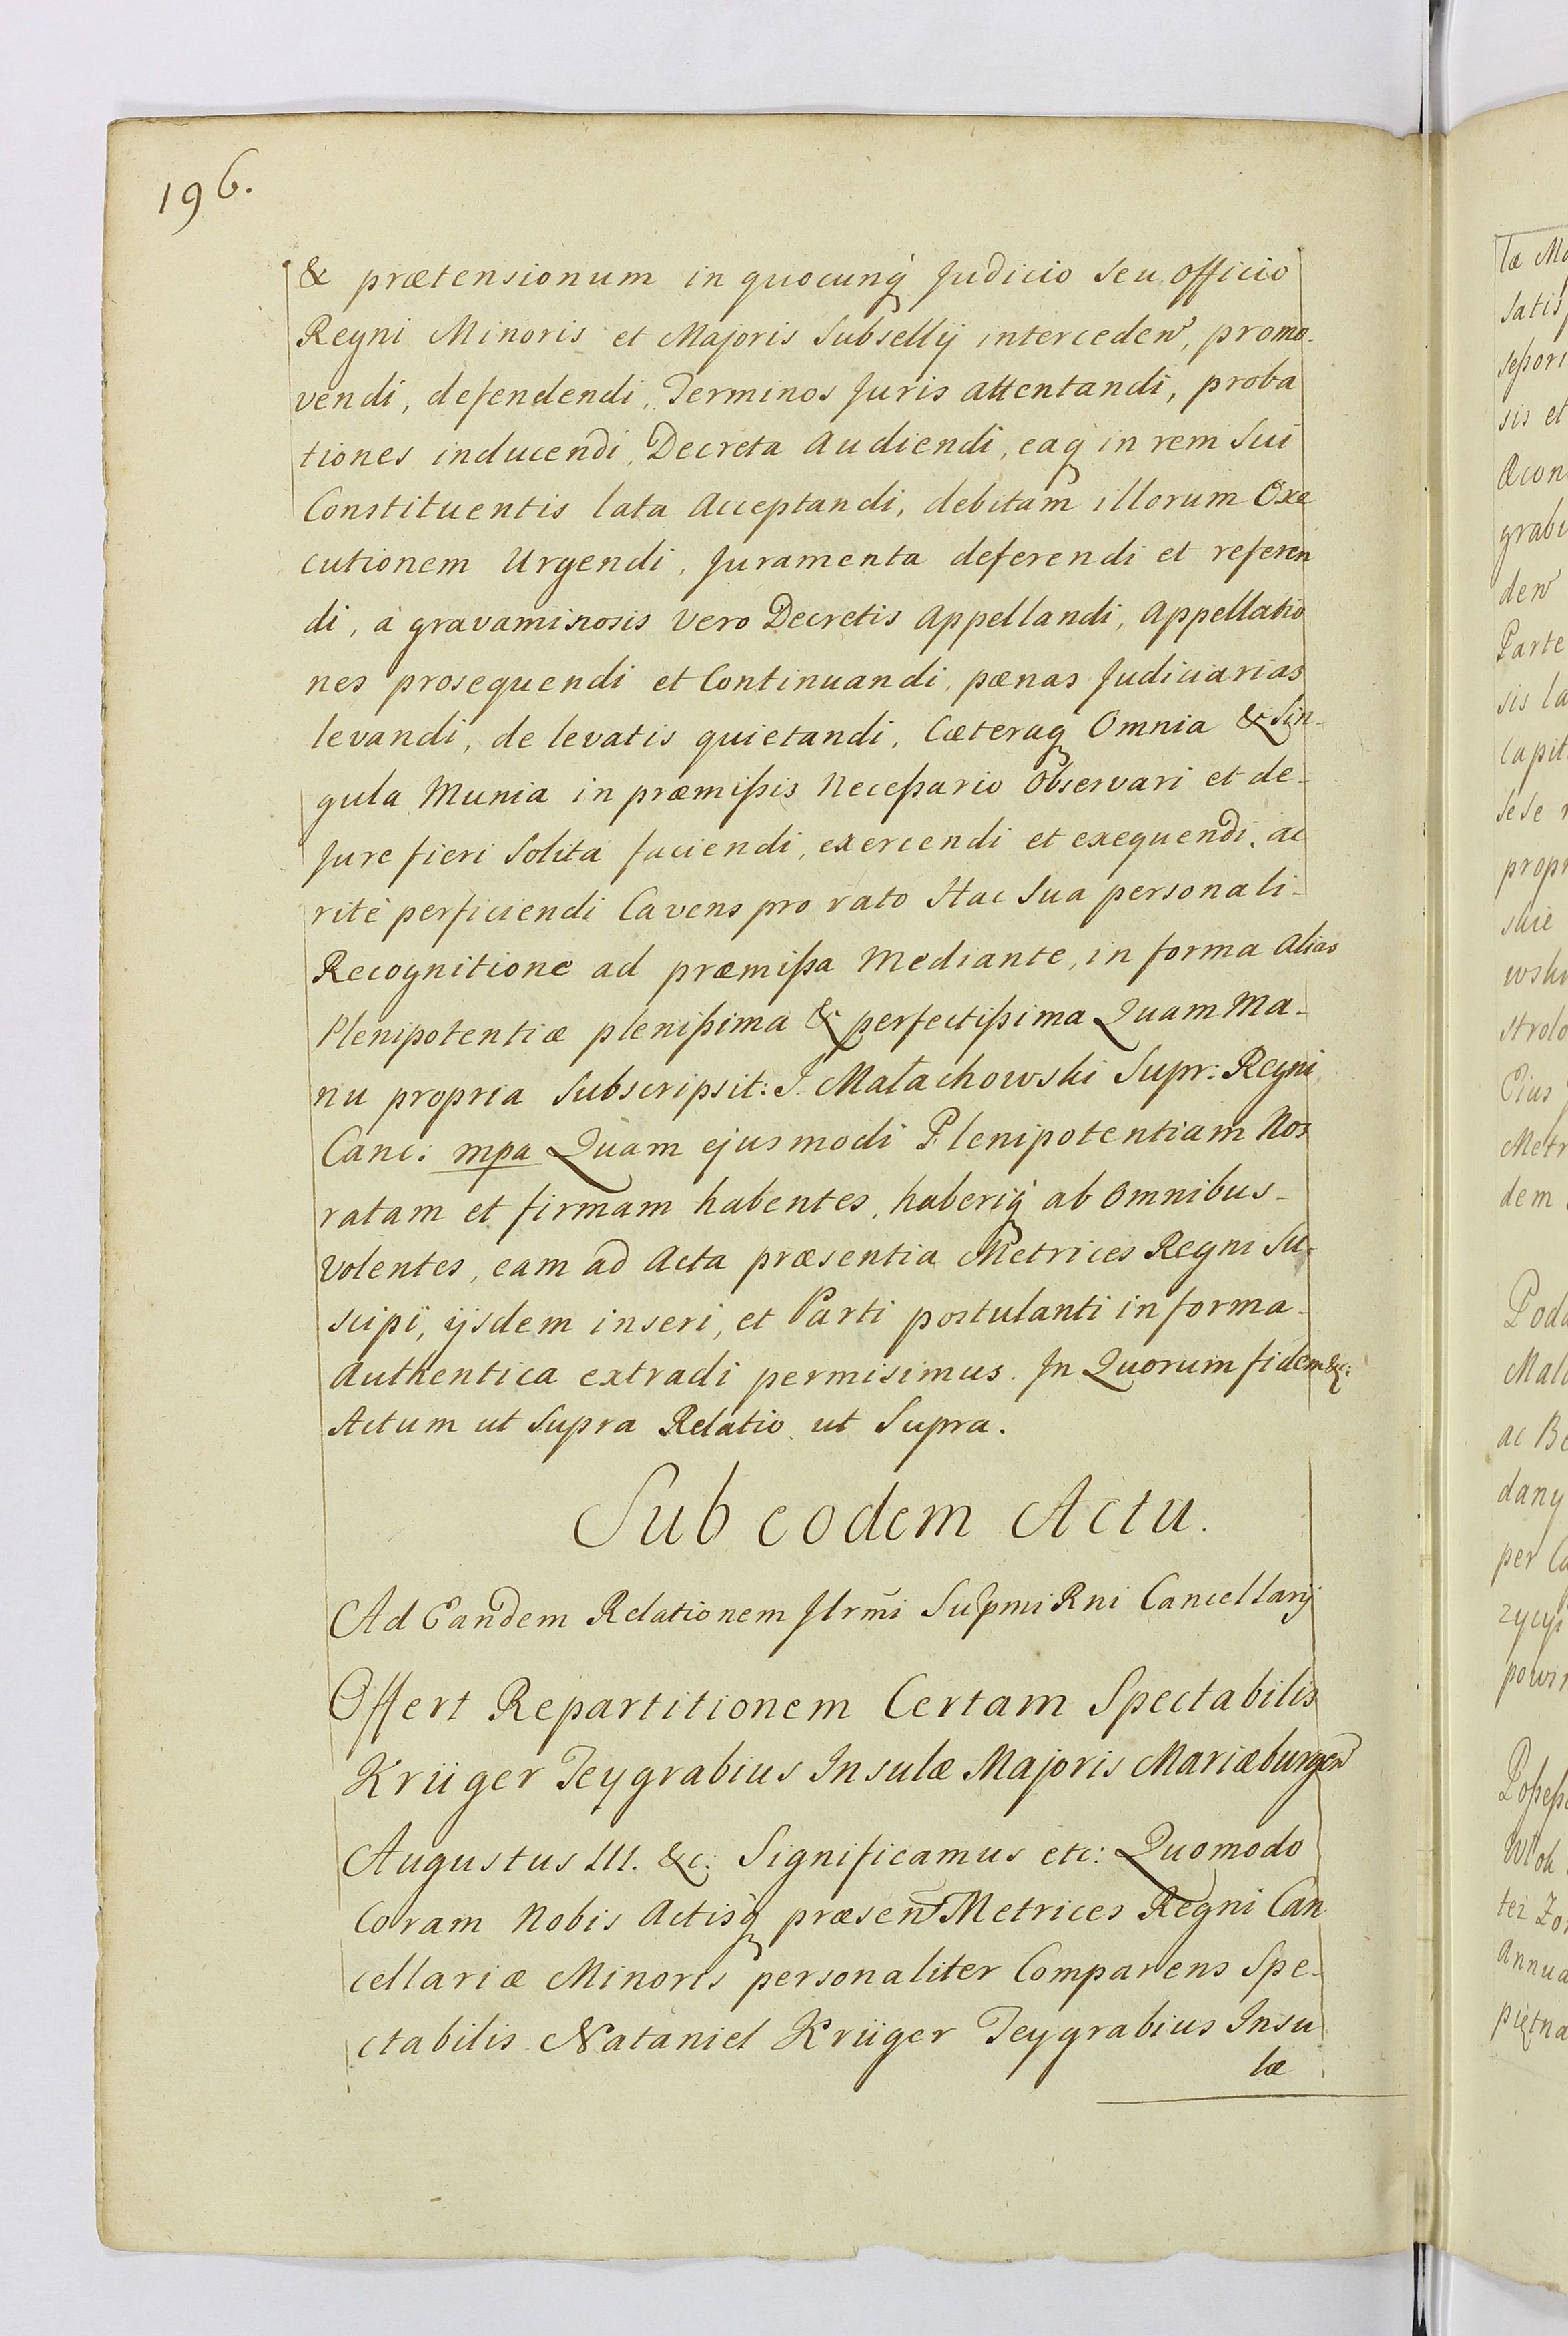 196.
& prætensionum in quocunq́ Judicio seu Officio
Regni Minoris et Majoris Subsellij interceden̄, promo-
vendi, defendendi, Terminos Juris attentandi, proba
tiones inducendi, Decreta Audiendi, eaq́ in rem Sui
Constituentis lata Acceptandi, debitam illorum Exe
cutionem Urgendi, Juramenta deferendi et referen
di, à gravaminosis vero Decretis Appellandi, Appellatio
nes prosequendi et Continuandi, pænas Judiciarias
levandi, de levatis quietandi, Cæteraq́ Omnia & Sin-
gula Munia in præmißis Neceßario Observari et de-
Jure fieri Solita faciendi, exercendi et exequendi, ac
ritè perficiendi Cavens pro rato Hac Sua personali-
Recognitione ad præmißa Mediante, in forma Alias
Plenipotentiæ plenißima & perfectißima Quam Ma-
nu propria Subscripsit: J. Małachowski Supr: Regni
Canc: mpa Quam ejusmodi Plenipotentiam Nos
ratam et firmam habentes, haberiq́ ab Omnibus-
Volentes, eam ad Acta præsentia Metrices Regni Su-
scipi, ijsdem inseri, et Parti postulanti in forma-
Authentica extradi permisimus. In Quorum fidem &c:
Actum ut Supra Relatio ut Supra.
Sub eodem Actu.
Ad Eandem Relationem Jlrm̄i Supmi Rni Cancellarij
Offert Repartitionem Certam Spectabilis
Krüger Teygrabius Insulæ Majoris Mariæburgen̄
Augustus III. &c: Significamus etc: Quomodo
Coram Nobis Actisq́ præsen̄t Metrices Regni Can
cellariæ Minoris personaliter Comparens Spe-
ctabilis Nataniel Krüger Teygrabius Insu
læ
la
satis
seßori
sis et
Œcon
grabi
den̄
Parte
sis la
Capit
sese
propr
skie
wski
strolo
Ejus
Metr
dem
Poda
Mal
ac
dany
per
zycyi
powin
ter
Annua
piętna